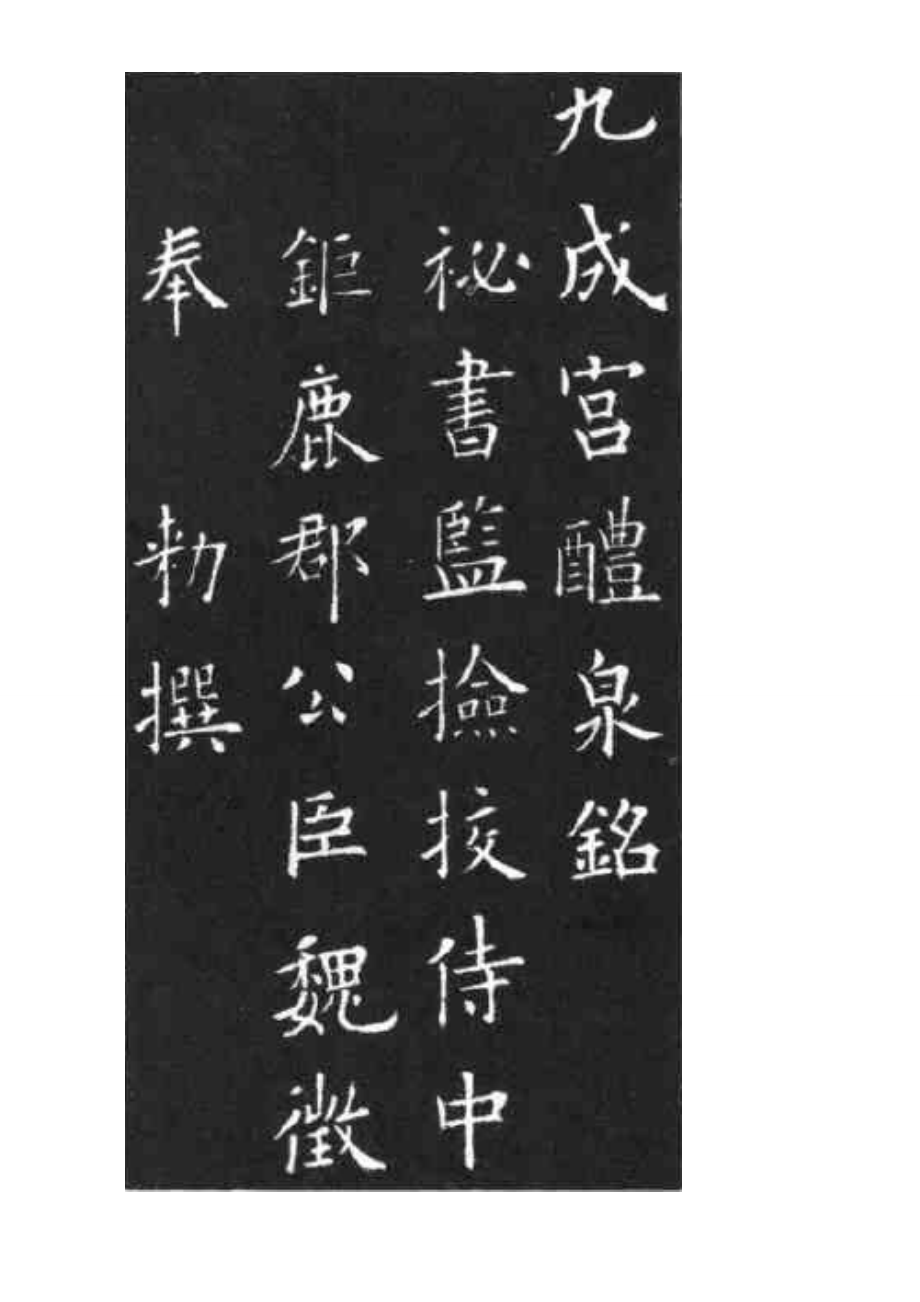 九成宮醴泉銘
祕書監撿挍侍中
鉅鹿郡公臣魏徵
奉勑撰